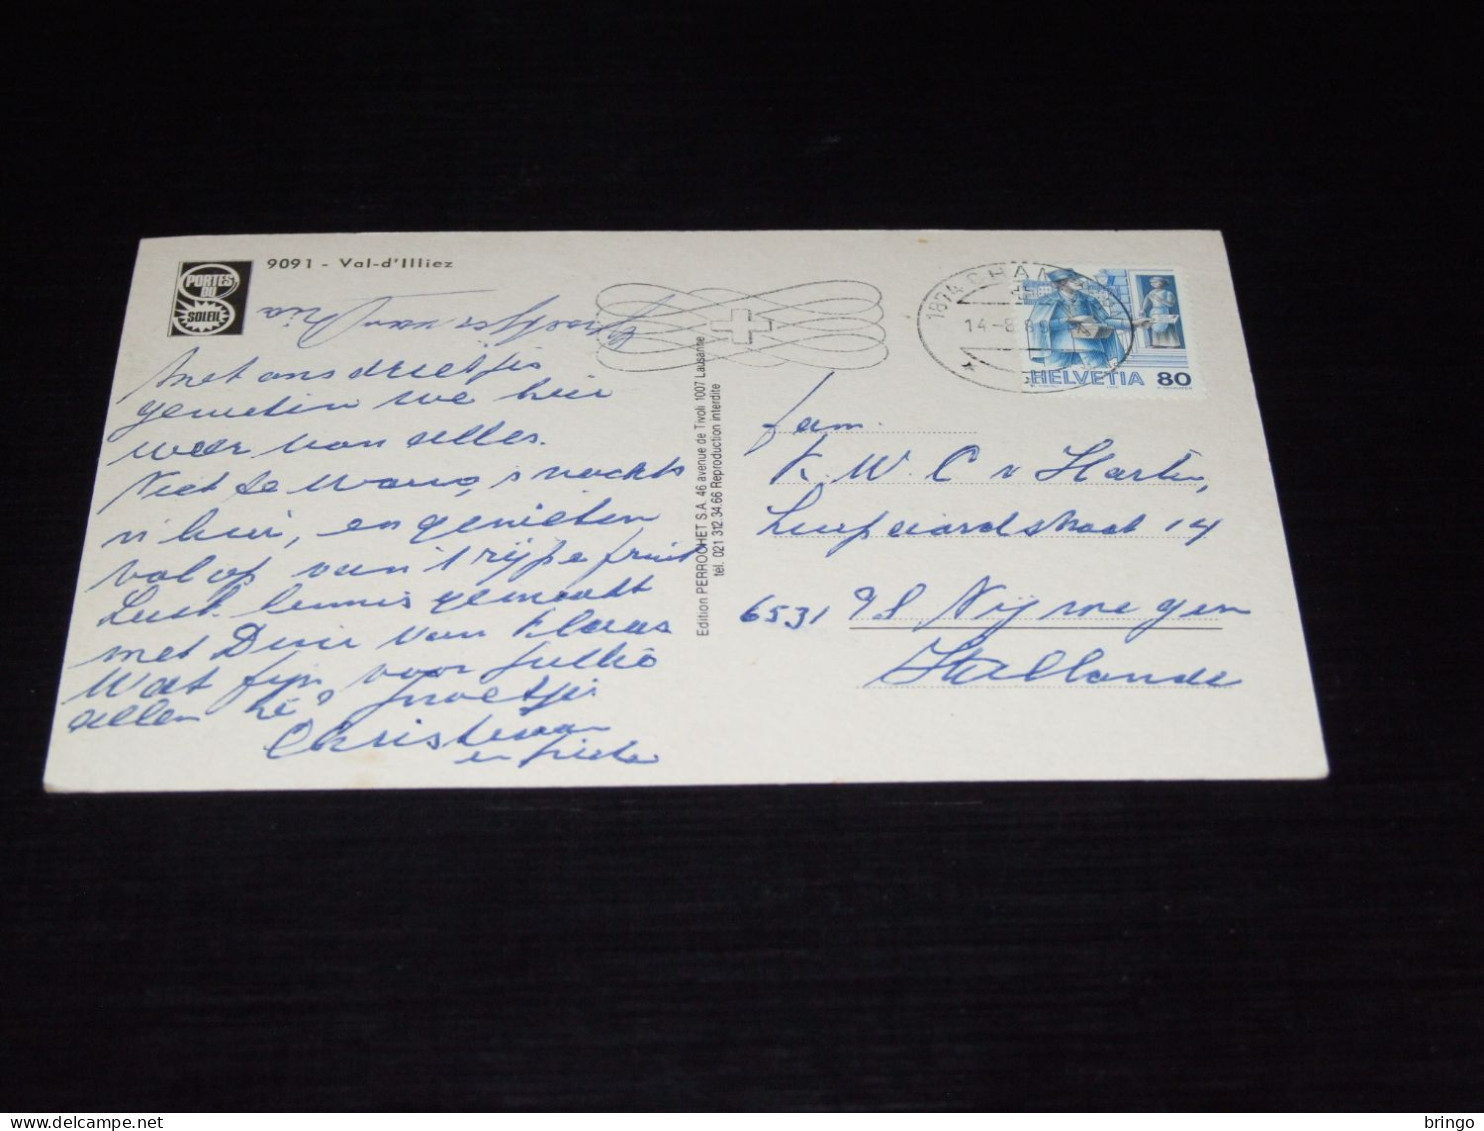 PORTES
DU
SOLEIL
9091 - Val-d'Illiez
Groetjes van Ria
Met ons drietjes
genieten we hier
weer van alles.
Niet te warm, s nachts
n bui, en genieten
val op van 't rijpe fruit
Leuk kennis gemaakt
met Dini van Klaas
Wat fijn voor jullie
allen hé? Groetjes
Christiaan
en
Edition PERROCHET S.A. 46 avenue de Tivoli 1007 Lausanne
tél. 021 312.34.66 Reproduction interdite
1874 CHAM
14-8 89
HELVETIA 80
Fam.
K. W. C v Harten,
Luipaardstraat 14
6531 98 Nijmegen
Hollande
bringo